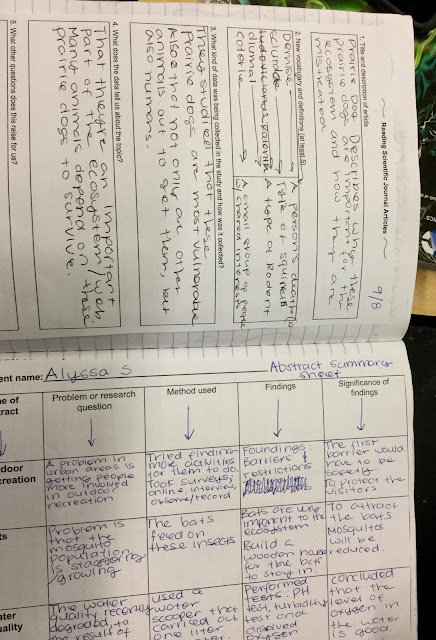 Reading Scientific Journal Articles
9/8
1. Title and description of article
Prairie Dog Describes why these
prairie dogs are important for the
ecosystem and how they are
mistreated.
2. New vocabulary and definitions (at least 5)
Demise A person's death
sciuridae Type of squirrel
A type of Rodent
diurnal
coterie A small group of people
w/ shared interests
3. What kind of data was being collected in the study and how was it collected?
They studied that these
prairie dogs are most vulnerable
Also that not only are other
animals out to get them, but
also humans.
4. What does the data tell us about the topic?
That theyre an important
part of the ecosystem/web.
Many animals depend on these
prairie dogs to survive.
5. What other questions does this raise for us?
ent name: Alyssa S
Abstract summary
sheet
me of
tract
Problem or research
question
Method used
Findings
Significance of
findings
tdoor
creation
A problem in
urban areas is
getting people
more involved
in outdoor
recreation
Tried finding
more activities
for them to do.
Took surveys;
online, interview,
observe/record
Foundings:
Barriers &
restrictions
The first
barrier would
have to be
safety
To protect the
visitors
ts
Problem is
that the
mosquito
population
is staggering/
growing
The bats
feed on
these insects
Bats are very
important to the
ecosystem
Build a
wooden house
for the bats
to stay in.
To attract
the bats
Mosquitos
will be
reduced.
ater
uality
The water
quality recently
degraded, to
the result of
used a
water
scooper that
carried out
one liter
Performed
tests: PH
test, turbidity
test and
disolved
oxygen
concluded
that the
level of
oxygen in
the water
is good